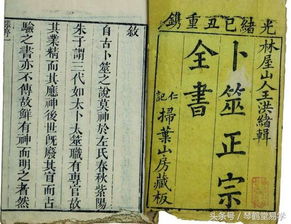 光緒己丑重鐫
林屋山人王洪緒輯
卜筮正宗
全書
仁記
掃葉山房藏板
敘
自古卜筮之說莫神於左氏春秋紫陽
朱子謂三代如太卜太筮職有專官故
其業精而其應神後世既廢其官而占
驗之書亦不傳故鮮有神而明之者然
头条号 / 琴鹤堂易学